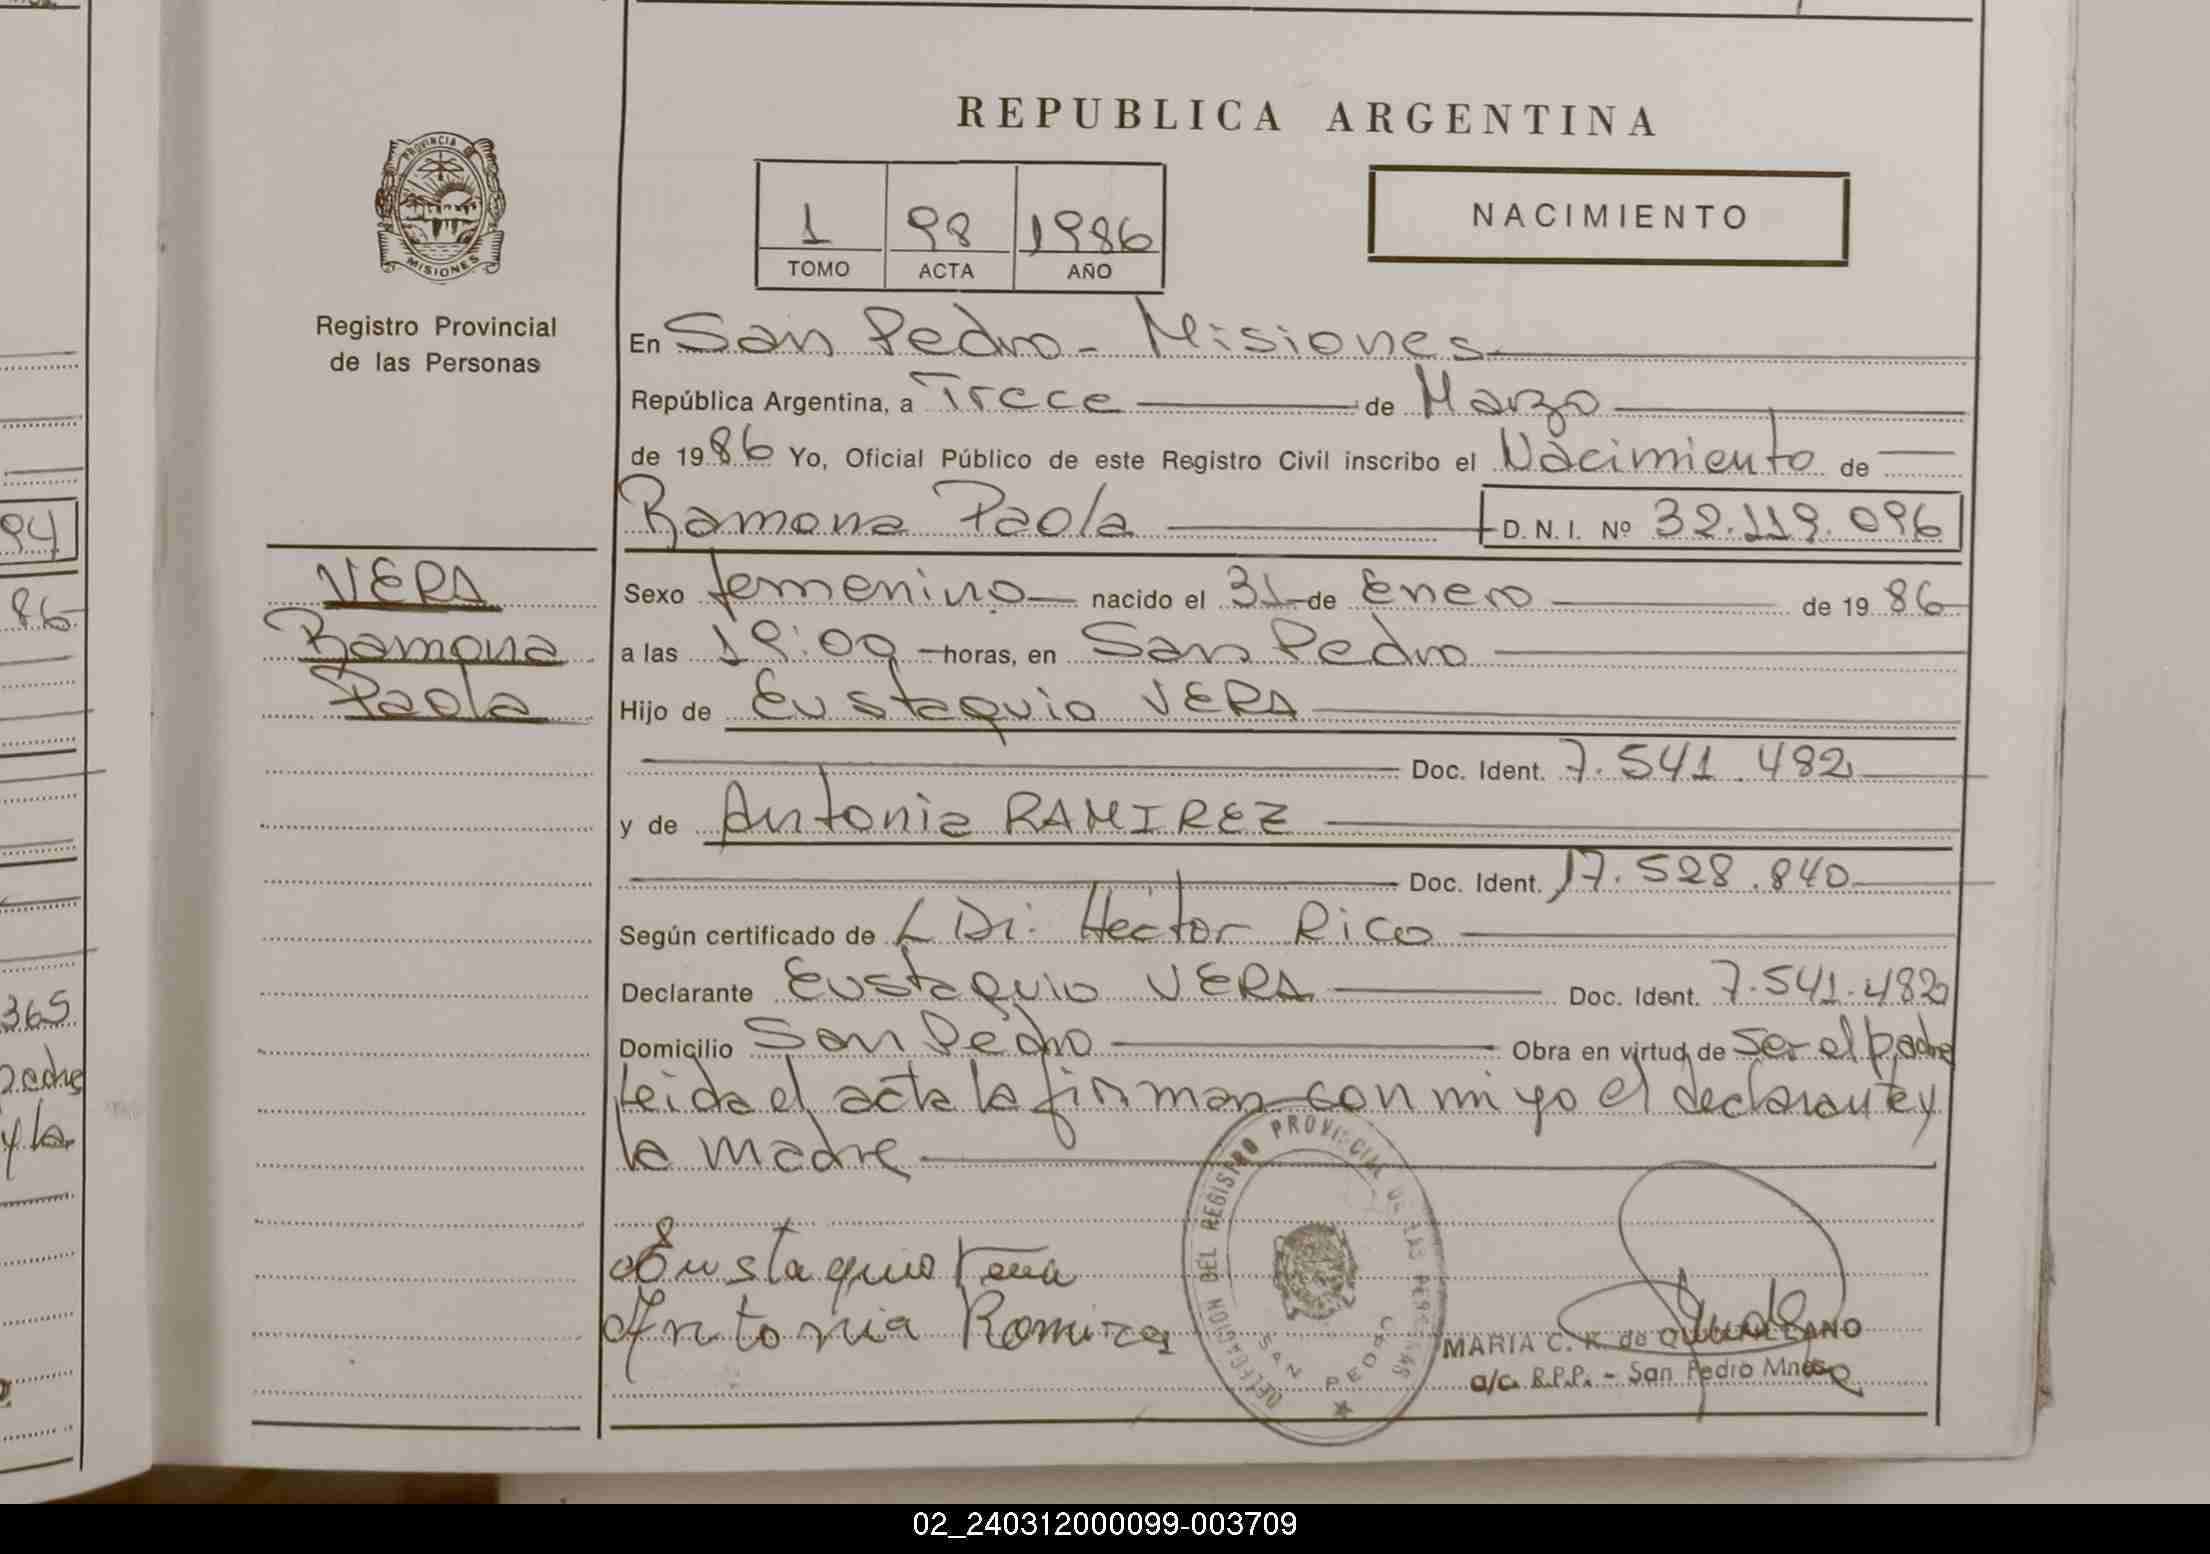 REPUBLICA ARGENTINA
PROVINCIA DE
MISIONES
Registro Provincial
de las Personas
1 98 1986
TOMO ACTA AÑO
NACIMIENTO
En San Pedro - Misiones
República Argentina, a Trece de Marzo
de 1986 Yo, Oficial Público de este Registro Civil inscribo el Nacimiento de
Ramona Paola D. N. I. Nº 32.119.096
VERA
Ramona
Paola
Sexo femenino nacido el 31 de Enero de 1986
a las 19:00 horas, en San Pedro
Hijo de Eustaquio VERA
Doc. Ident. 7.541.482
y de Antonia RAMIREZ
Doc. Ident. 17.528.840
Según certificado de Héctor Rico
Declarante Eustaquio VERA Doc. Ident. 7.541.482
Domicilio San Pedro Obra en virtud de ser el padre
Leida el acta la firman con mi yo el declarante y
la madre
Eustaquio Vera
Antonia Ramirez
DELEGACION DEL REGISTRO PROVINCIAL DE LAS PERSONAS
SAN PEDRO
MARIA C. R. de
a/c. R.P.P. - San Pedro Mnes
94
86
365
padre
y la
02_240312000099-003709